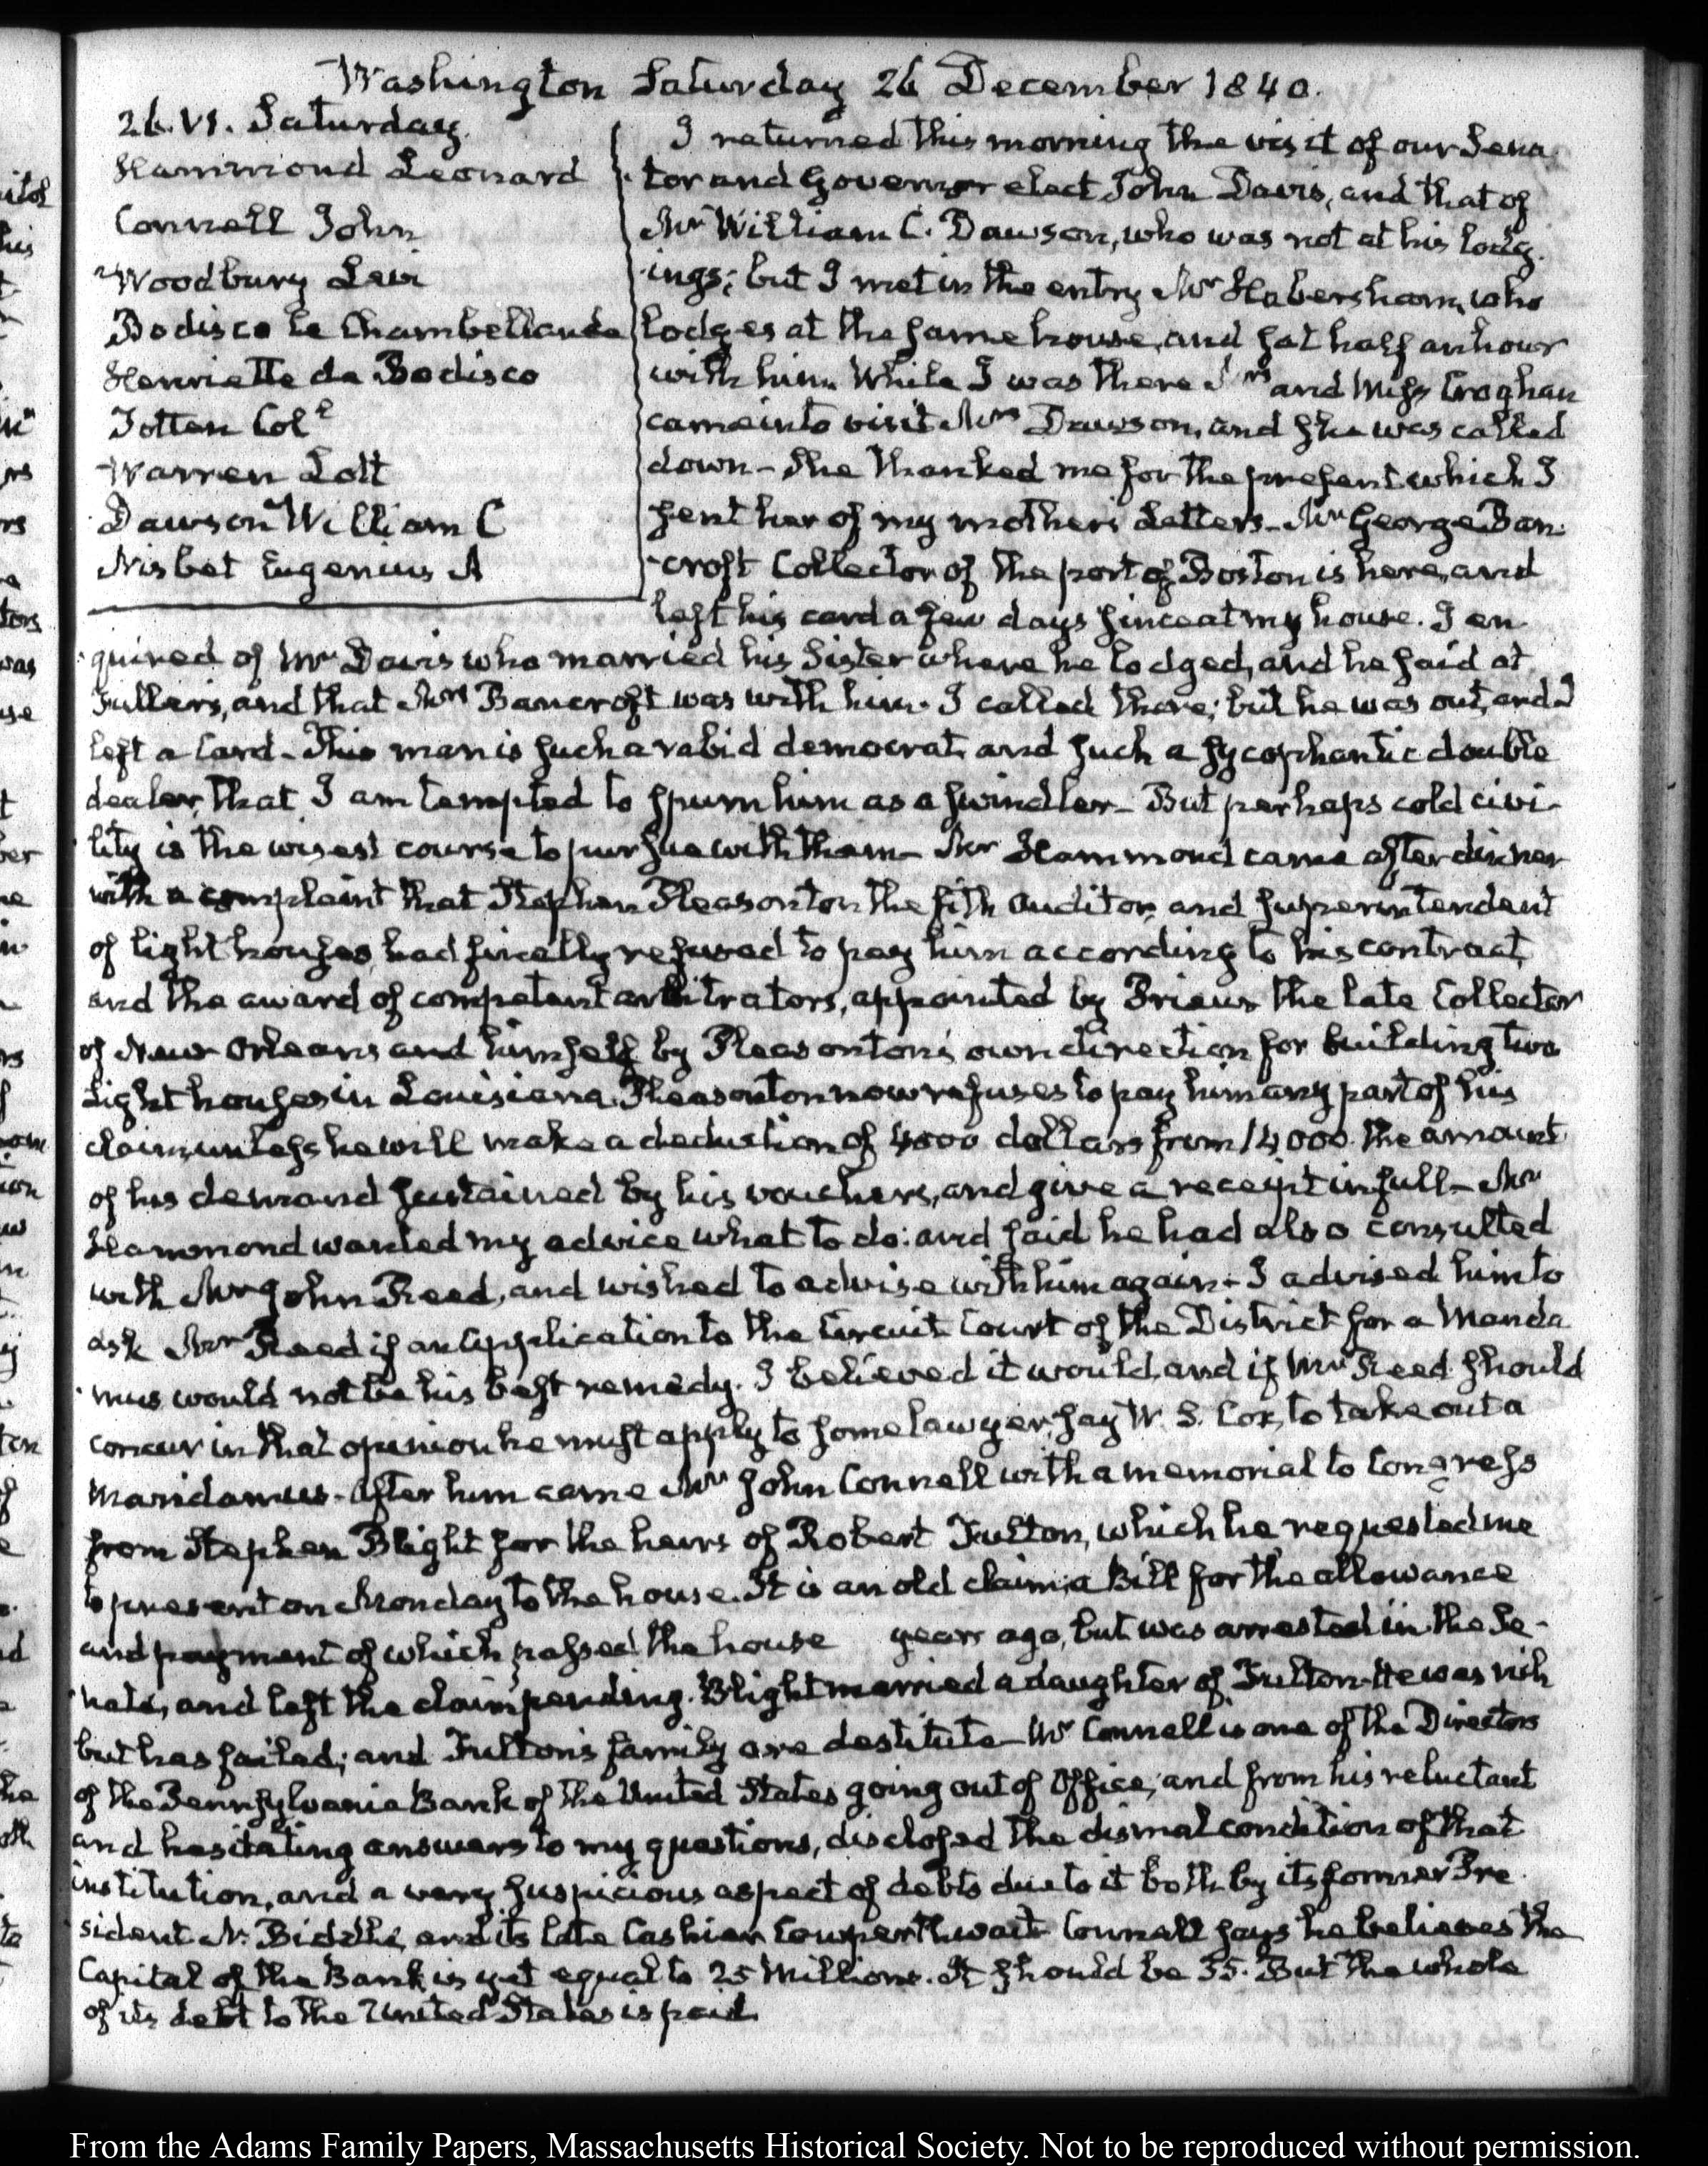 Washington Saturday 26 December 1840.
26. VI. Saturday.
Hammond Leonard
Connell John
Woodbury Levi
Bodisco le Chambellan de
Henriette de Bodisco
Totten Col.l
Warren Lott
Dawson William C
Nisbet Eugenius A
I returned this morning the visit of our Sena
tor and Governor elect John Davis, and that of
Mr William C. Dawson, who was not at his lodg-
ings; but I met in the entry Mr Habersham, who
lodges at the same house, and sat half an hour
with him. While I was there Mrs and Miss Croghan
came in to visit Mrs Dawson, and she was called
down – She thanked me for the present which I
sent her of my mother's Letters – Mr George Ban-
croft Collector of the port of Boston is here, and
left his card a few days since at my house. I en-
quired of Mr Davis who married his Sister where he lodged, and he said at
Fuller's, and that Mrs Bancroft was with him. I called there; but he was out, and I
left a Card – This man is such a rabid democrat, and such a sycophantic double
dealer, that I am tempted to spurn him as a swindler – But perhaps cold civi-
lity is the wisest course to pursue with them – Mr Hammond came after dinner
with a complaint that Stephen Pleasonton the fifth auditor, and superintendent
of light houses, had finally refused to pay him according to his contract,
and the award of competent arbitrators, appointed by Prieur the late Collector
of New Orleans and himself by Pleasonton's own direction for building two
Light houses in Louisiana. Pleasonton now refuses to pay him any part of his
claim, unless he will make a deduction of 4000 dollars from 14000. the amount
of his demand sustained by his vouchers, and give a receipt in full – Mr
Hammond wanted my advice what to do: and said he had also consulted
with Mr John Reed, and wished to advise with him again – I advised him to
ask Mr Reed if an application to the Circuit Court of the District for a Manda
mus would not be his best remedy. I believed it would, and if Mr Reed should
concur in that opinion he must apply to some lawyer, say W. S. Cox, to take out a
Mandamus – After him came Mr John Connell with a memorial to Congress
from Stephen Blight for the heirs of Robert Fulton, which he requested me
to present on Monday to the house. It is an old claim; a Bill for the allowance
and payment of which passed the house years ago, but was arrested in the Se-
nate, and left the claim pending. Blight married a daughter of Fulton – He was rich
but has failed; and Fulton's family are destitute – Mr Connell is one of the Directors
of the Pennsylvania Bank of the United States going out of Office, and from his reluctant
and hesitating answers to my questions, disclosed the dismal condition of that
institution, and a very suspicious aspect of debts due to it both by its former Pre-
sident N. Biddle, and its late Cashier Cowperthwait. Connell says he believes the
Capital of the Bank is yet equal to 25 Millions. It should be 35. But the whole
of its debt to the United States is paid.
From the Adams Family Papers, Massachusetts Historical Society. Not to be reproduced without permission.